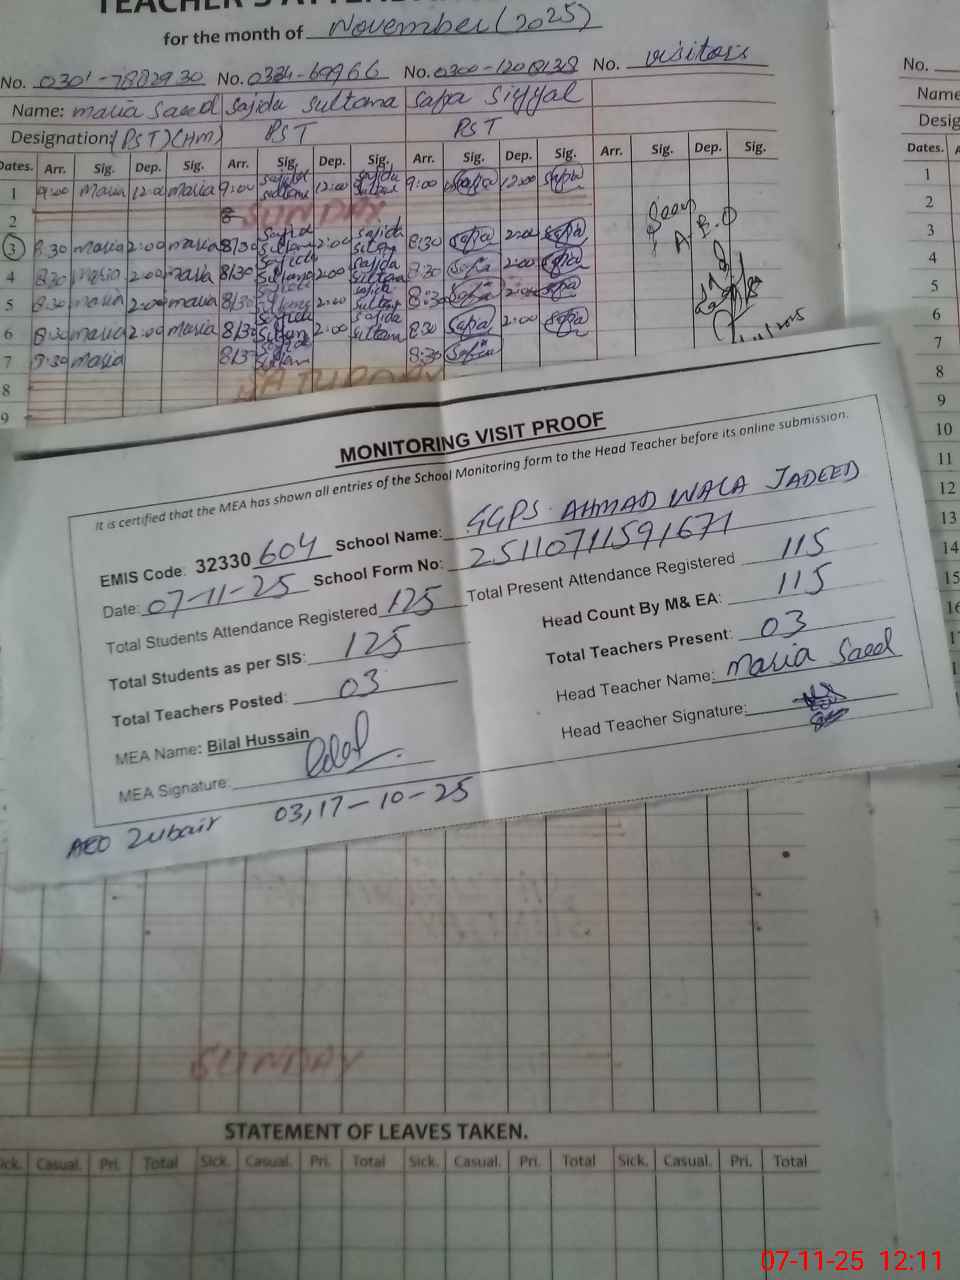 TEACHER'S ATTENDAN
for the month of November (2025)
No. 0301-7882930 No. 0334-69966 No. 0300-1208138 No. visitors
Name: maria Saeed Sajida Sultana Safia Siyyal
Designation: (PST)(HM) PST PST
Dates. Arr. Sig. Dep. Sig. Arr. Sig. Dep. Sig. Arr. Sig. Dep. Sig. Arr. Sig. Dep. Sig.
1 9:00 maria 12:00 maria 9:00 sajida sultana 12:00 sajida sultana 9:00 Safia 12:00 Safia
2 SUNDAY
3 8:30 maria 2:00 maria 8/30 sajida sultana 2:00 sajida sultana 8:30 Safia 2:00 Safia
4 8:30 maria 2:00 maria 8/30 sajida sultana 2:00 sajida sultana 8:30 Safia 2:00 Safia
5 8:30 maria 2:00 maria 8/30 sajida sultana 2:00 sajida sultana 8:30 Safia 2:00 Safia
6 8:30 maria 2:00 maria 8/30 sajida sultana 2:00 sajida sultana 8:30 Safia 2:00 Safia
7 8:30 maria 8/30 sajida sultana 8:30 Safia
8 SATURDAY
9
Seen
No.
Name
Desig
Dates.
1
2
3
4
5
6
7
8
9
10
11
12
13
14
15
16
MONITORING VISIT PROOF
It is certified that the MEA has shown all entries of the School Monitoring form to the Head Teacher before its online submission.
EMIS Code: 32330 604 School Name: GGPS AHMAD WALA JADEED
Date: 07-11-25 School Form No: 25110711591671
Total Students Attendance Registered 125 Total Present Attendance Registered 115
Total Students as per SIS: 125 Head Count By M& EA: 115
Total Teachers Posted: 03 Total Teachers Present: 03
MEA Name: Bilal Hussain Head Teacher Name: Maria Saeed
MEA Signature: Head Teacher Signature:
AEO Zubair 03,17-10-25
SUNDAY
STATEMENT OF LEAVES TAKEN.
ick. Casual. Pri. Total Sick. Casual. Pri. Total Sick. Casual. Pri. Total Sick. Casual. Pri. Total
07-11-25 12:11